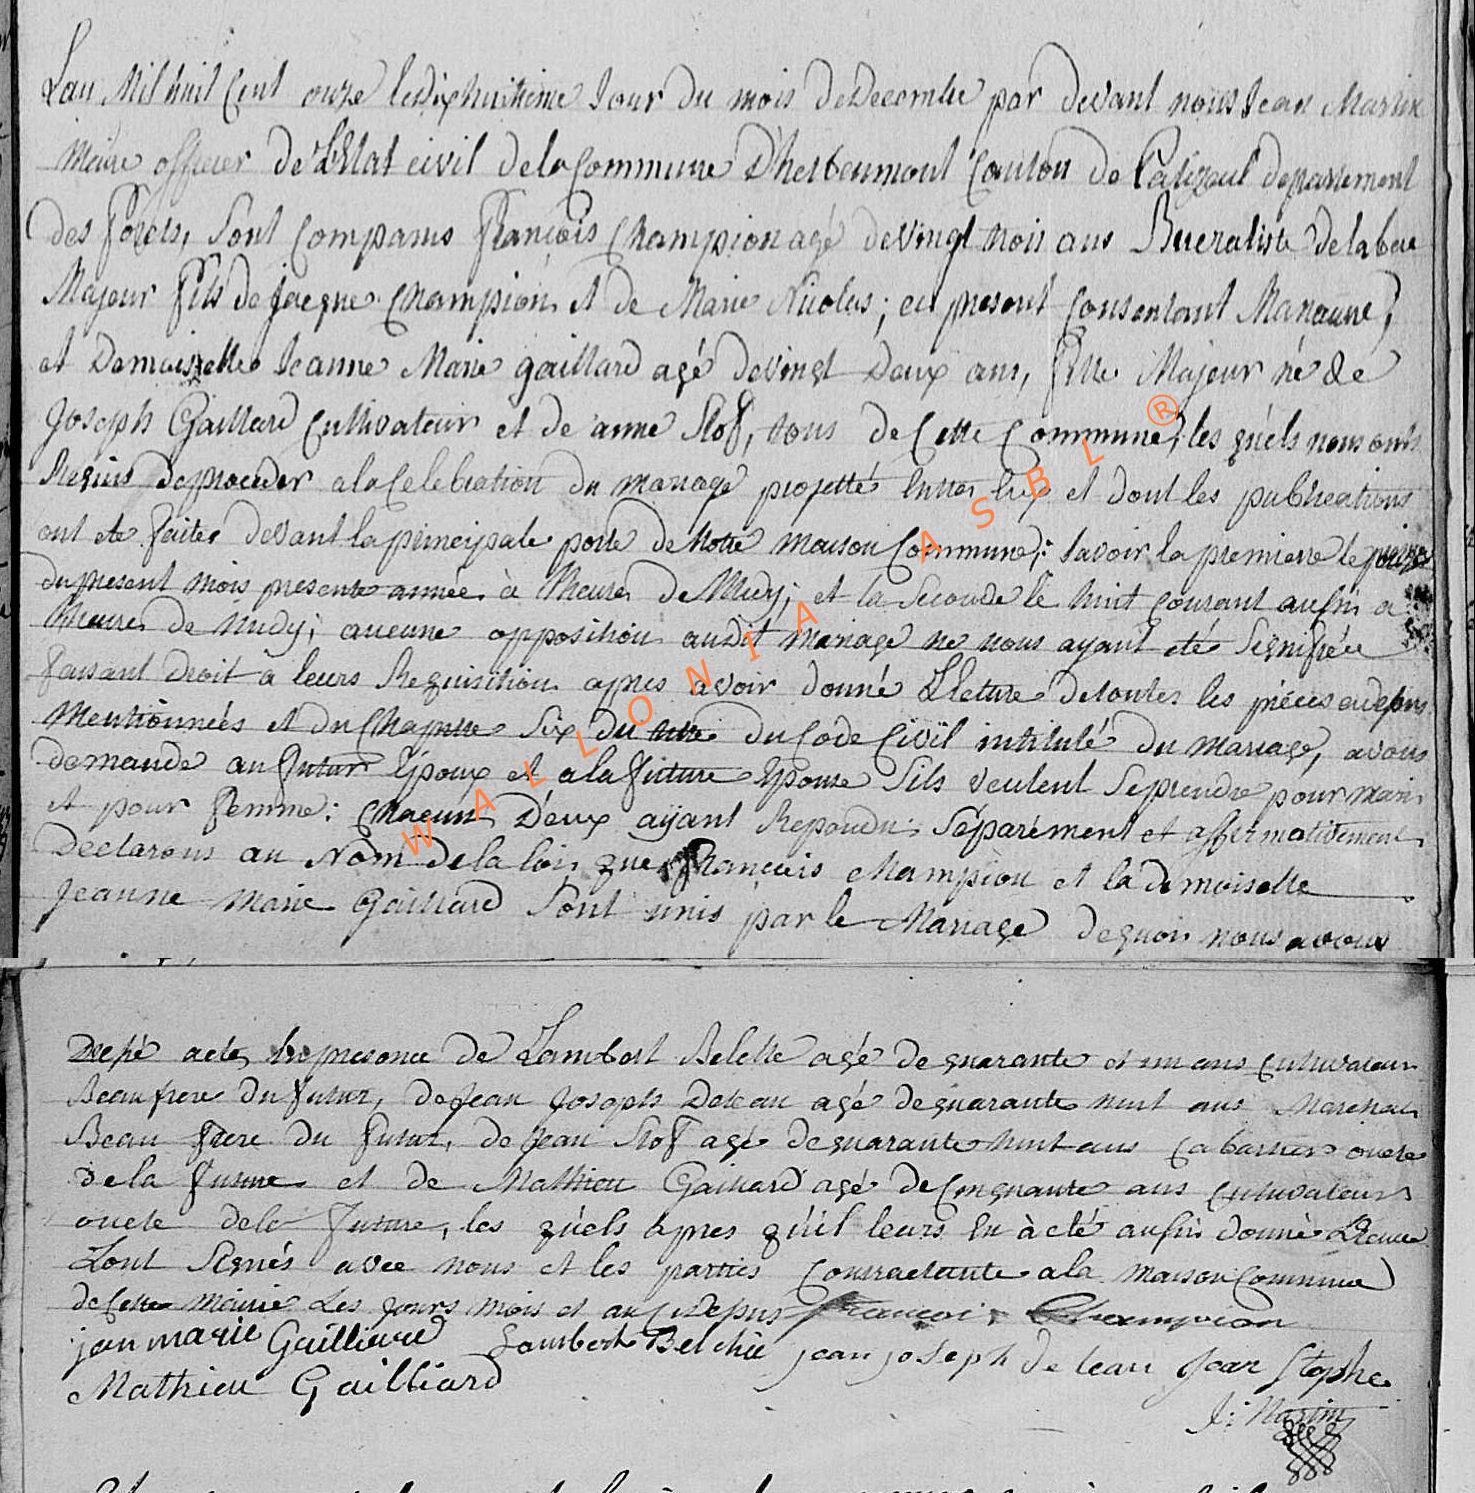 Lan Mil huit Cent onze le dix huitieme Jour du mois de Decembre par devant nous Jean Martin
Maire officier de L'Etat civil de la Commune D'herbeumont Canton de Palizeul departement
des Forets, Sont Comparus François Champion agé de vingt trois ans Buraliste
Majeur fils de Jacque Champion et de Marie Nicolas; ci present Consentant
et Demoiselle Jeanne Marie gaillard agé de vingt Deux ans, fille Majeur né de
Joseph Gaillard Cultivateur et de anne Stof, tous de Cette Commune, les quels nous onts
Requis de proceder a la Celebration du mariage projetté entre eux et dont les publications
ont ete faites devant la principale porte de Notre maison Commune; savoir la premiere le
du present mois presente année à l'heure de Midy; et la Seconde le huit Courant aussi a
l'heure de midy; aucune opposition audit mariage ne nous ayant été Signifiée
faisant droit a leurs Requisition apres avoir donné Lecture de toutes les piéces cidepus
Mentionnées et du Chapitre Six du titre du Code Civil intitulé du mariage, avons
demande au futur Epoux et a la future Epouse Sils veulent Se prendre pour mari
et pour femme: Chacun D'eux ayant Repondu Séparément et affirmativement
Declarons au Nom de la loi, que François Champion et la demoiselle
Jeanne Marie Gaillard Sont unis par le Mariage de quoi nous avons
acte, En presence de Lambert Belche agé de quarante et un ans Cultivateur
Beau frere du futur, de Jean Joseph Deleau agé de quarante huit ans Marechal
Beau frere du futur, de Jean Stof agé de quarante huit ans Cabartier oncle
de la future et de Mathieu Gaillard agé de Cinquante ans Cultivateur
oncle de la future, les quels apres qu'il leurs En à eté aussi donné Lecture
Lont Signés avec nous et les parties Contractante a la maison Commune
de Cette Mairie Les Jours mois et an Cidepus françois Champion
jan marie Gaillard Lambert Belche jean joseph de leau Jean Stophe
Mathieu Gailliard
J: Martin
WALLONIA ASBL ®